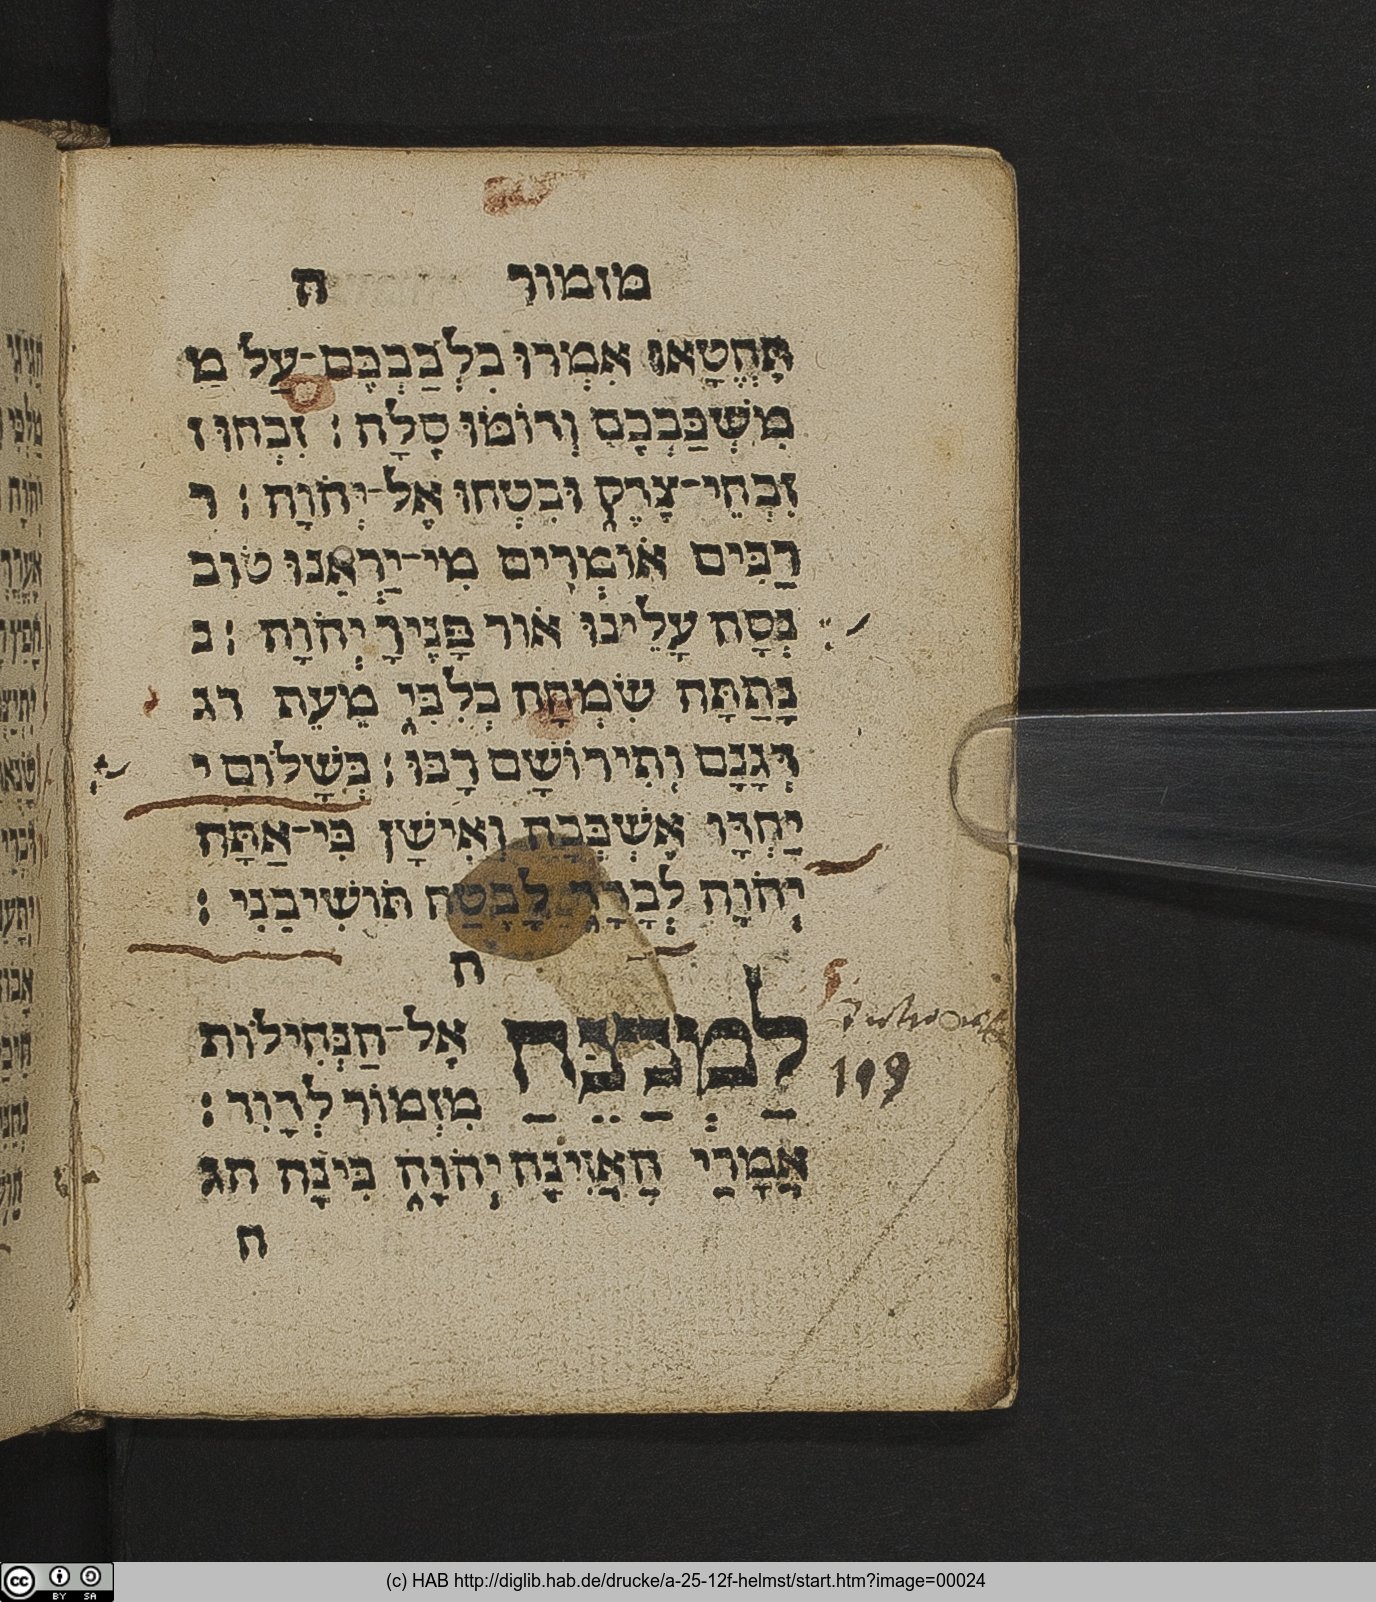 מזמור ה
תֶּחֱטָאוּ אִמְרוּ בִלְבַבְכֶּם־עַל מִ
מִשְׁכַּבְכֶם וְדוֹמּוּ סֶלָה׃ זִבְחוּ ז
זִבְחֵי־צֶדֶק וּבִטְחוּ אֶל־יְהֹוָה׃ ר
רַבִּים אֹומְרִים מִי־יַרְאֵנוּ טוֹב
נְסָה עָלֵינוּ אֹור פָּנֶיךָ יְהֹוָה׃ נ
נָתַתָּה שִׂמְחָה בְלִבִּי מֵעֵת דג
דְּגָנָם וְתִירוֹשָׁם רָבּוּ׃ בְּשָׁלוֹם י
יַחְדָּו אֶשְׁכְּבָה וְאִישָׁן כִּי־אַתָּה
יְהֹוָה לְבָדָד לָבֶטַח תּוֹשִׁיבֵנִי׃
ה
לַמְנַצֵּחַ אֶל־הַנְּחִילוֹת
מִזְמוֹר לְדָוִד׃
אֲמָרַי הַאֲזִינָה יְהֹוָה בִּינָה הג
ה
109
(c) HAB http://diglib.hab.de/drucke/a-25-12f-helmst/start.htm?image=00024
BY SA